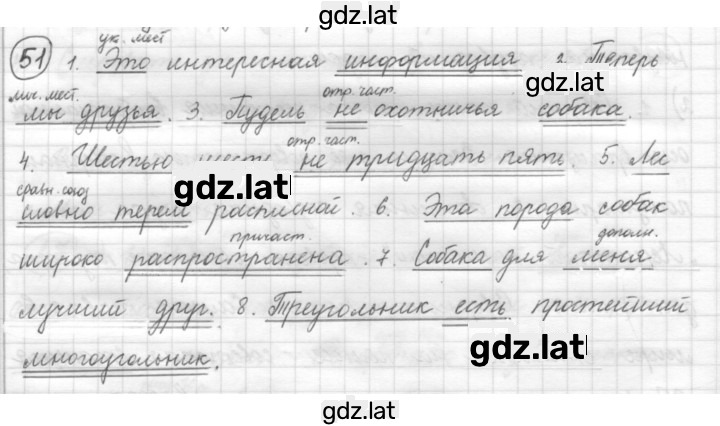 gdz.lat
ук. мест.
51 1. Это интересная информация 2. Теперь
gdz.lat
лич. мест. отр. част.
мы друзья. 3. Пудель не охотничья собака.
отр. част.
4. Шестью шесть не тридцать пять. 5. Лес
gdz.lat
сравн. союз
словно терем расписной. 6. Эта порода собак
причаст. дополн.
широко распространена. 7. Собака для меня
лучший друг. 8. Треугольник есть простейший
gdz.lat
многоугольник.
gdz.lat